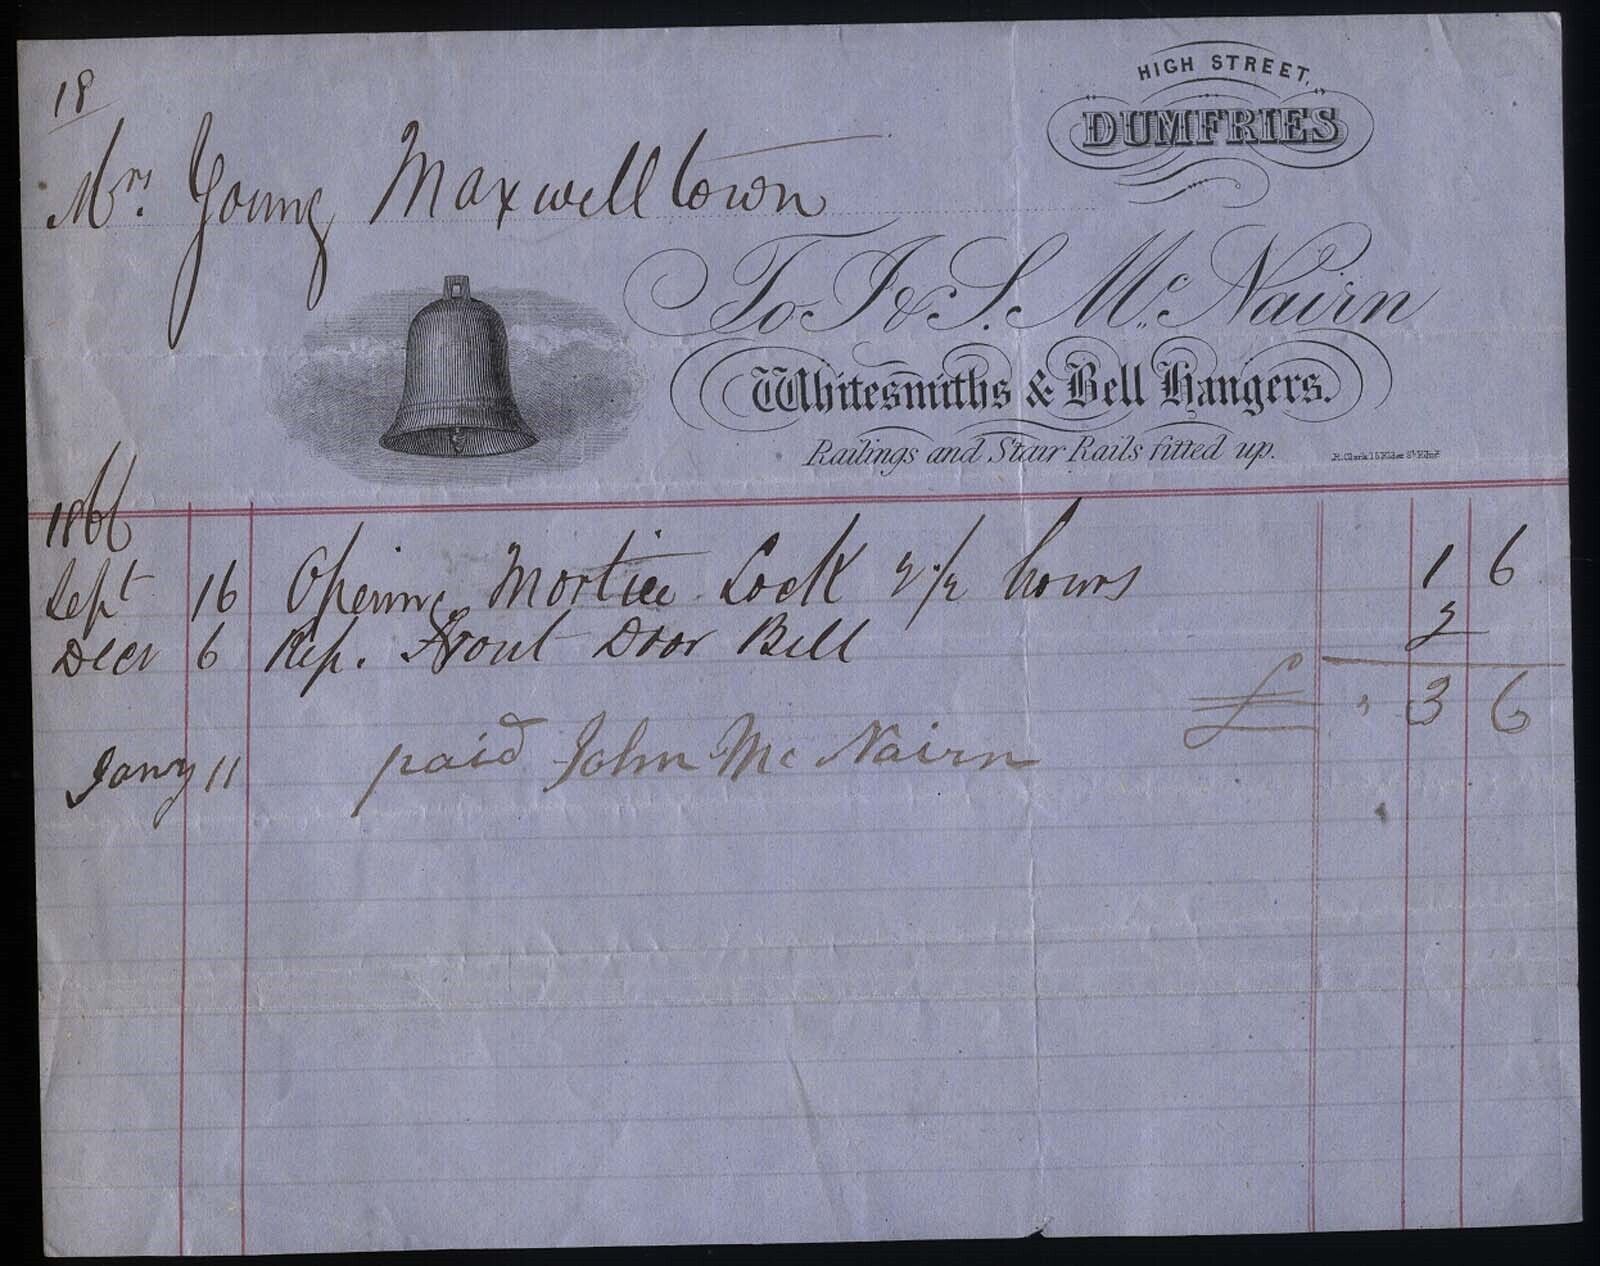 18
HIGH STREET,
DUMFRIES
Mrs. Young Maxwelltown
To J & S. Mc. Nairn
Whitesmiths & Bell Hangers.
Railings and Stair Rails fitted up.
R. Clark
1866
Sept 16 Opening Mortice Lock 2 1/2 hours 1 6
Decr 6 Rep. Front Door Bell 2
£ " 3 6
Jany 11 paid John Mc Nairn